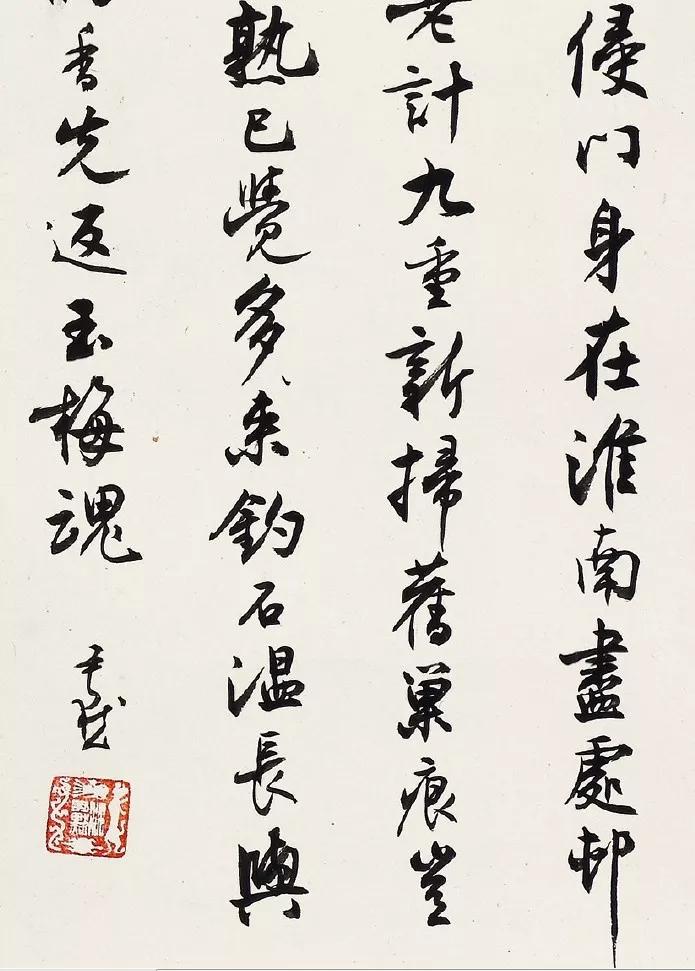 侵门身在淮南盡處邨
老計九重新掃舊巢痕豈
熟已覺多來釣石温長與
香先返玉梅魂
尹默